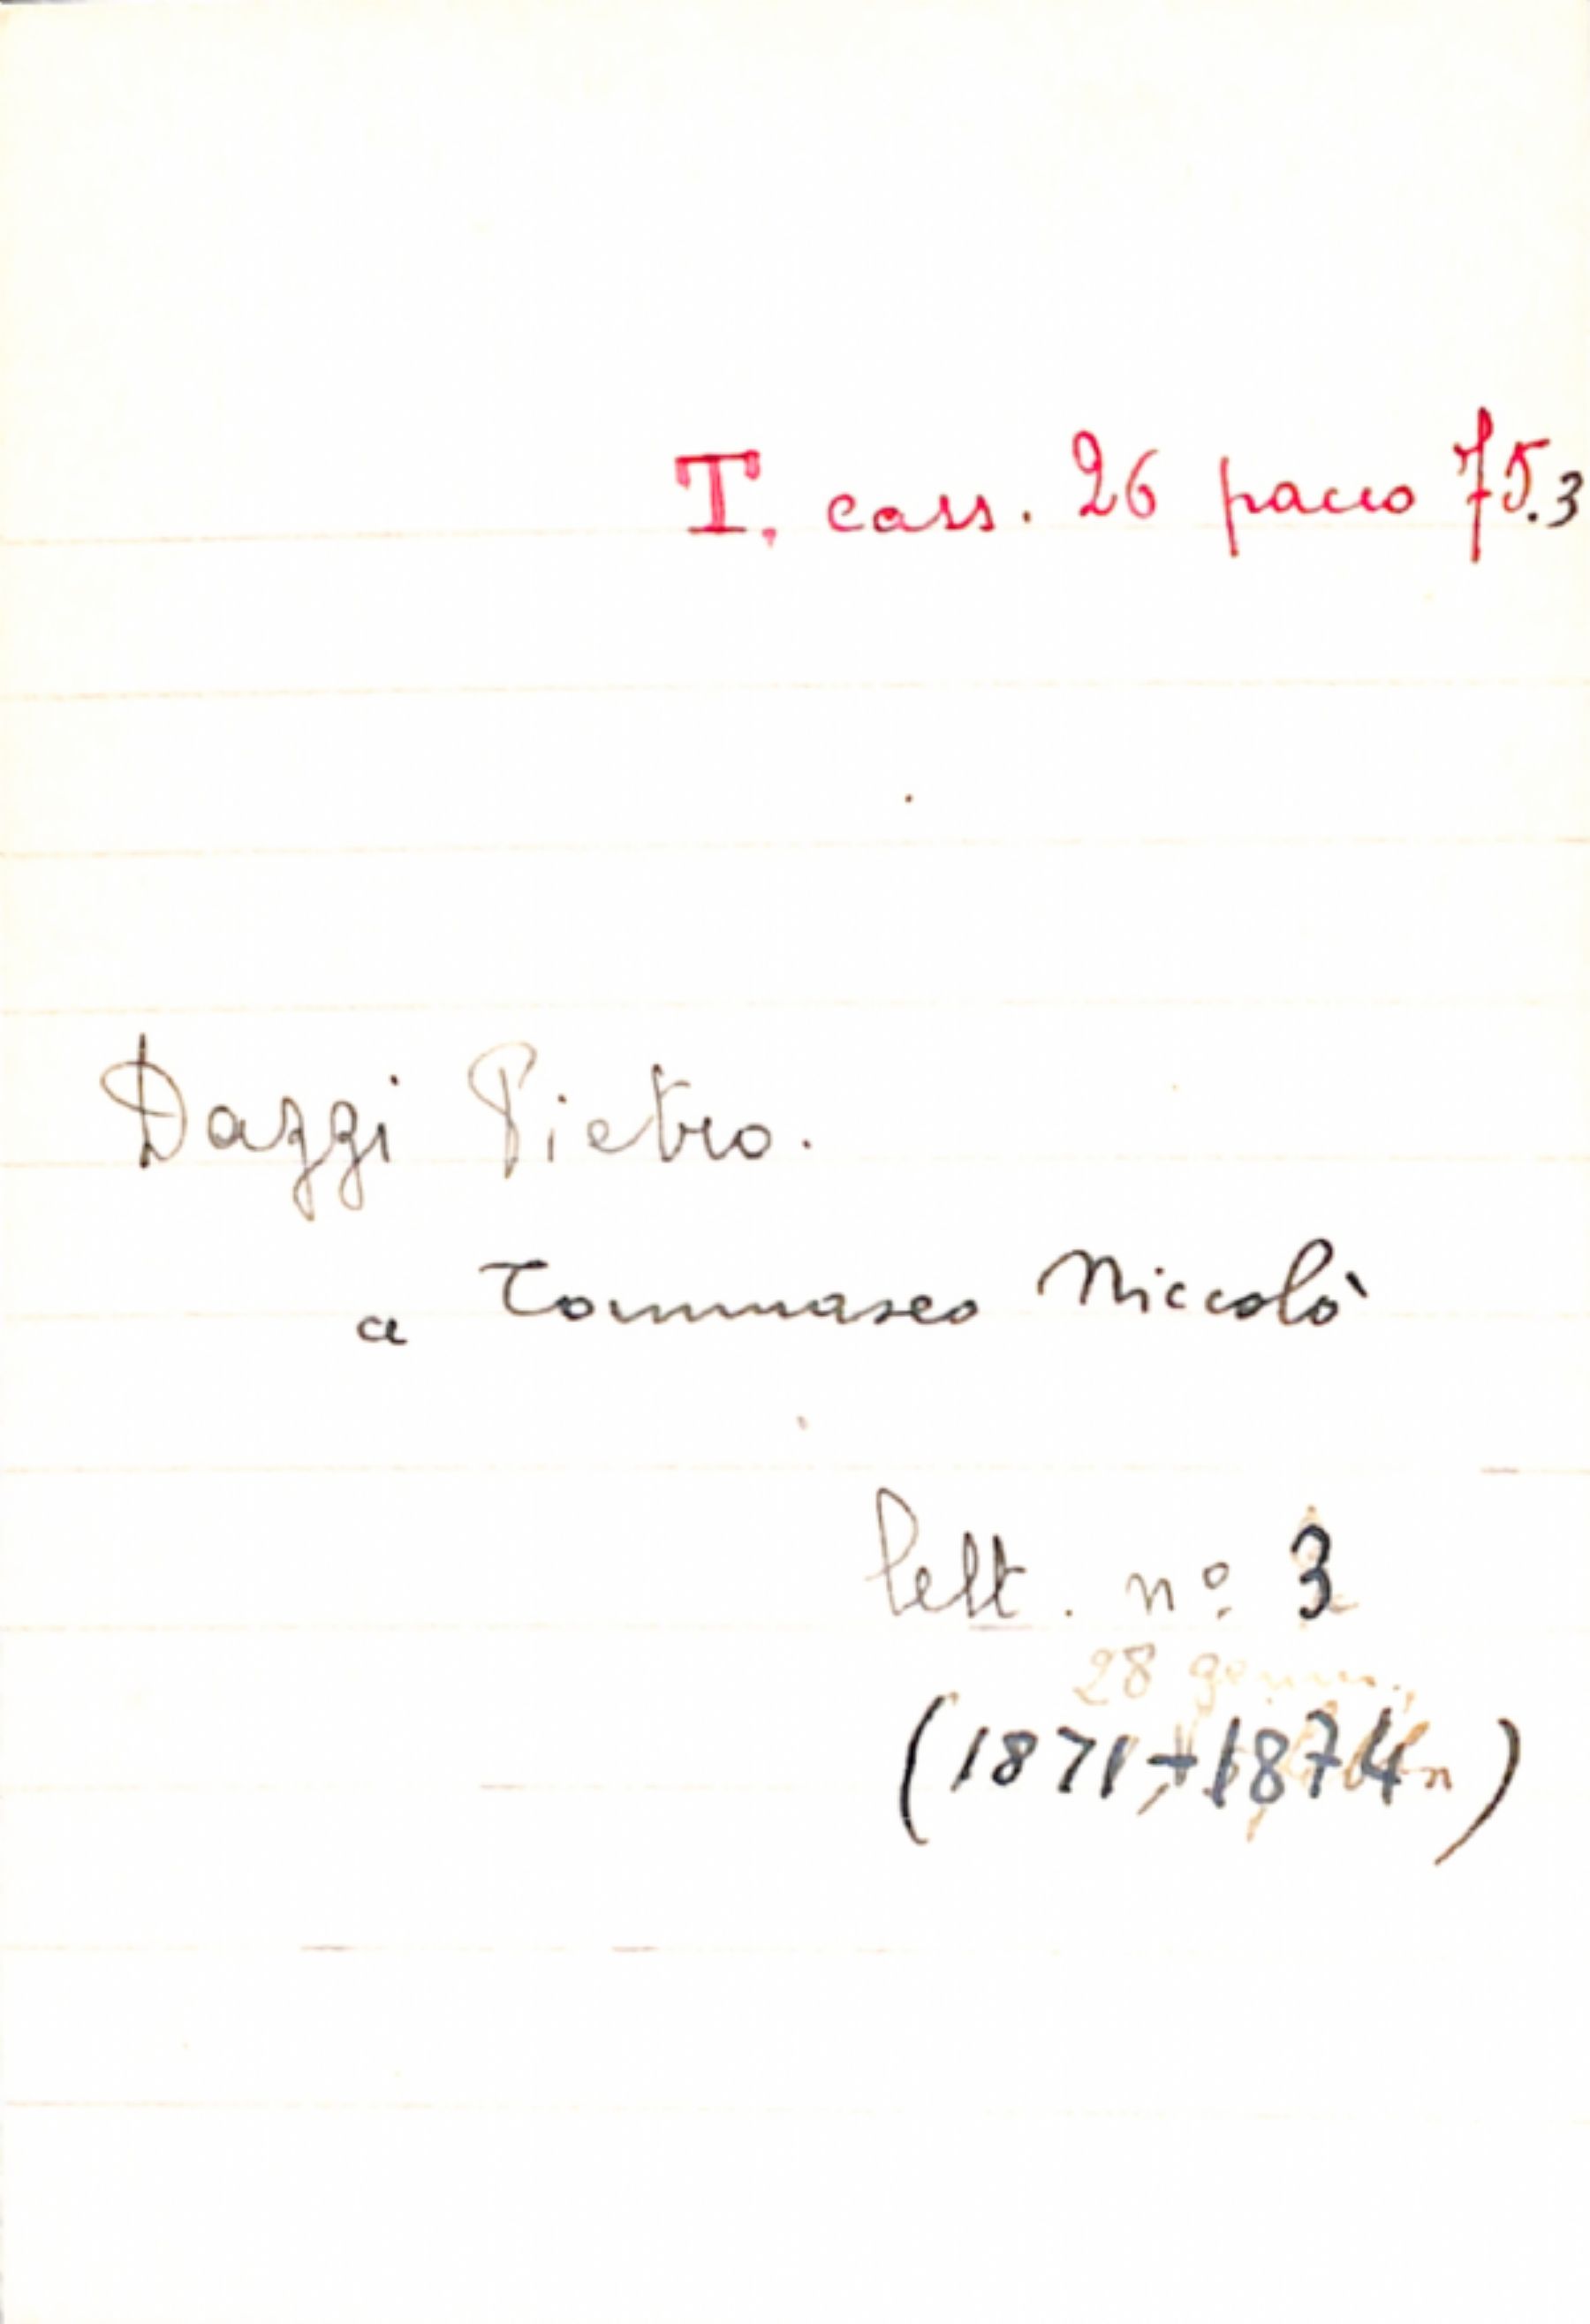 T. cass. 26 pacco 75.3
Dazzi Pietro.
a Tommaseo Niccolò
lett. nº 3
28
(1871-1874)